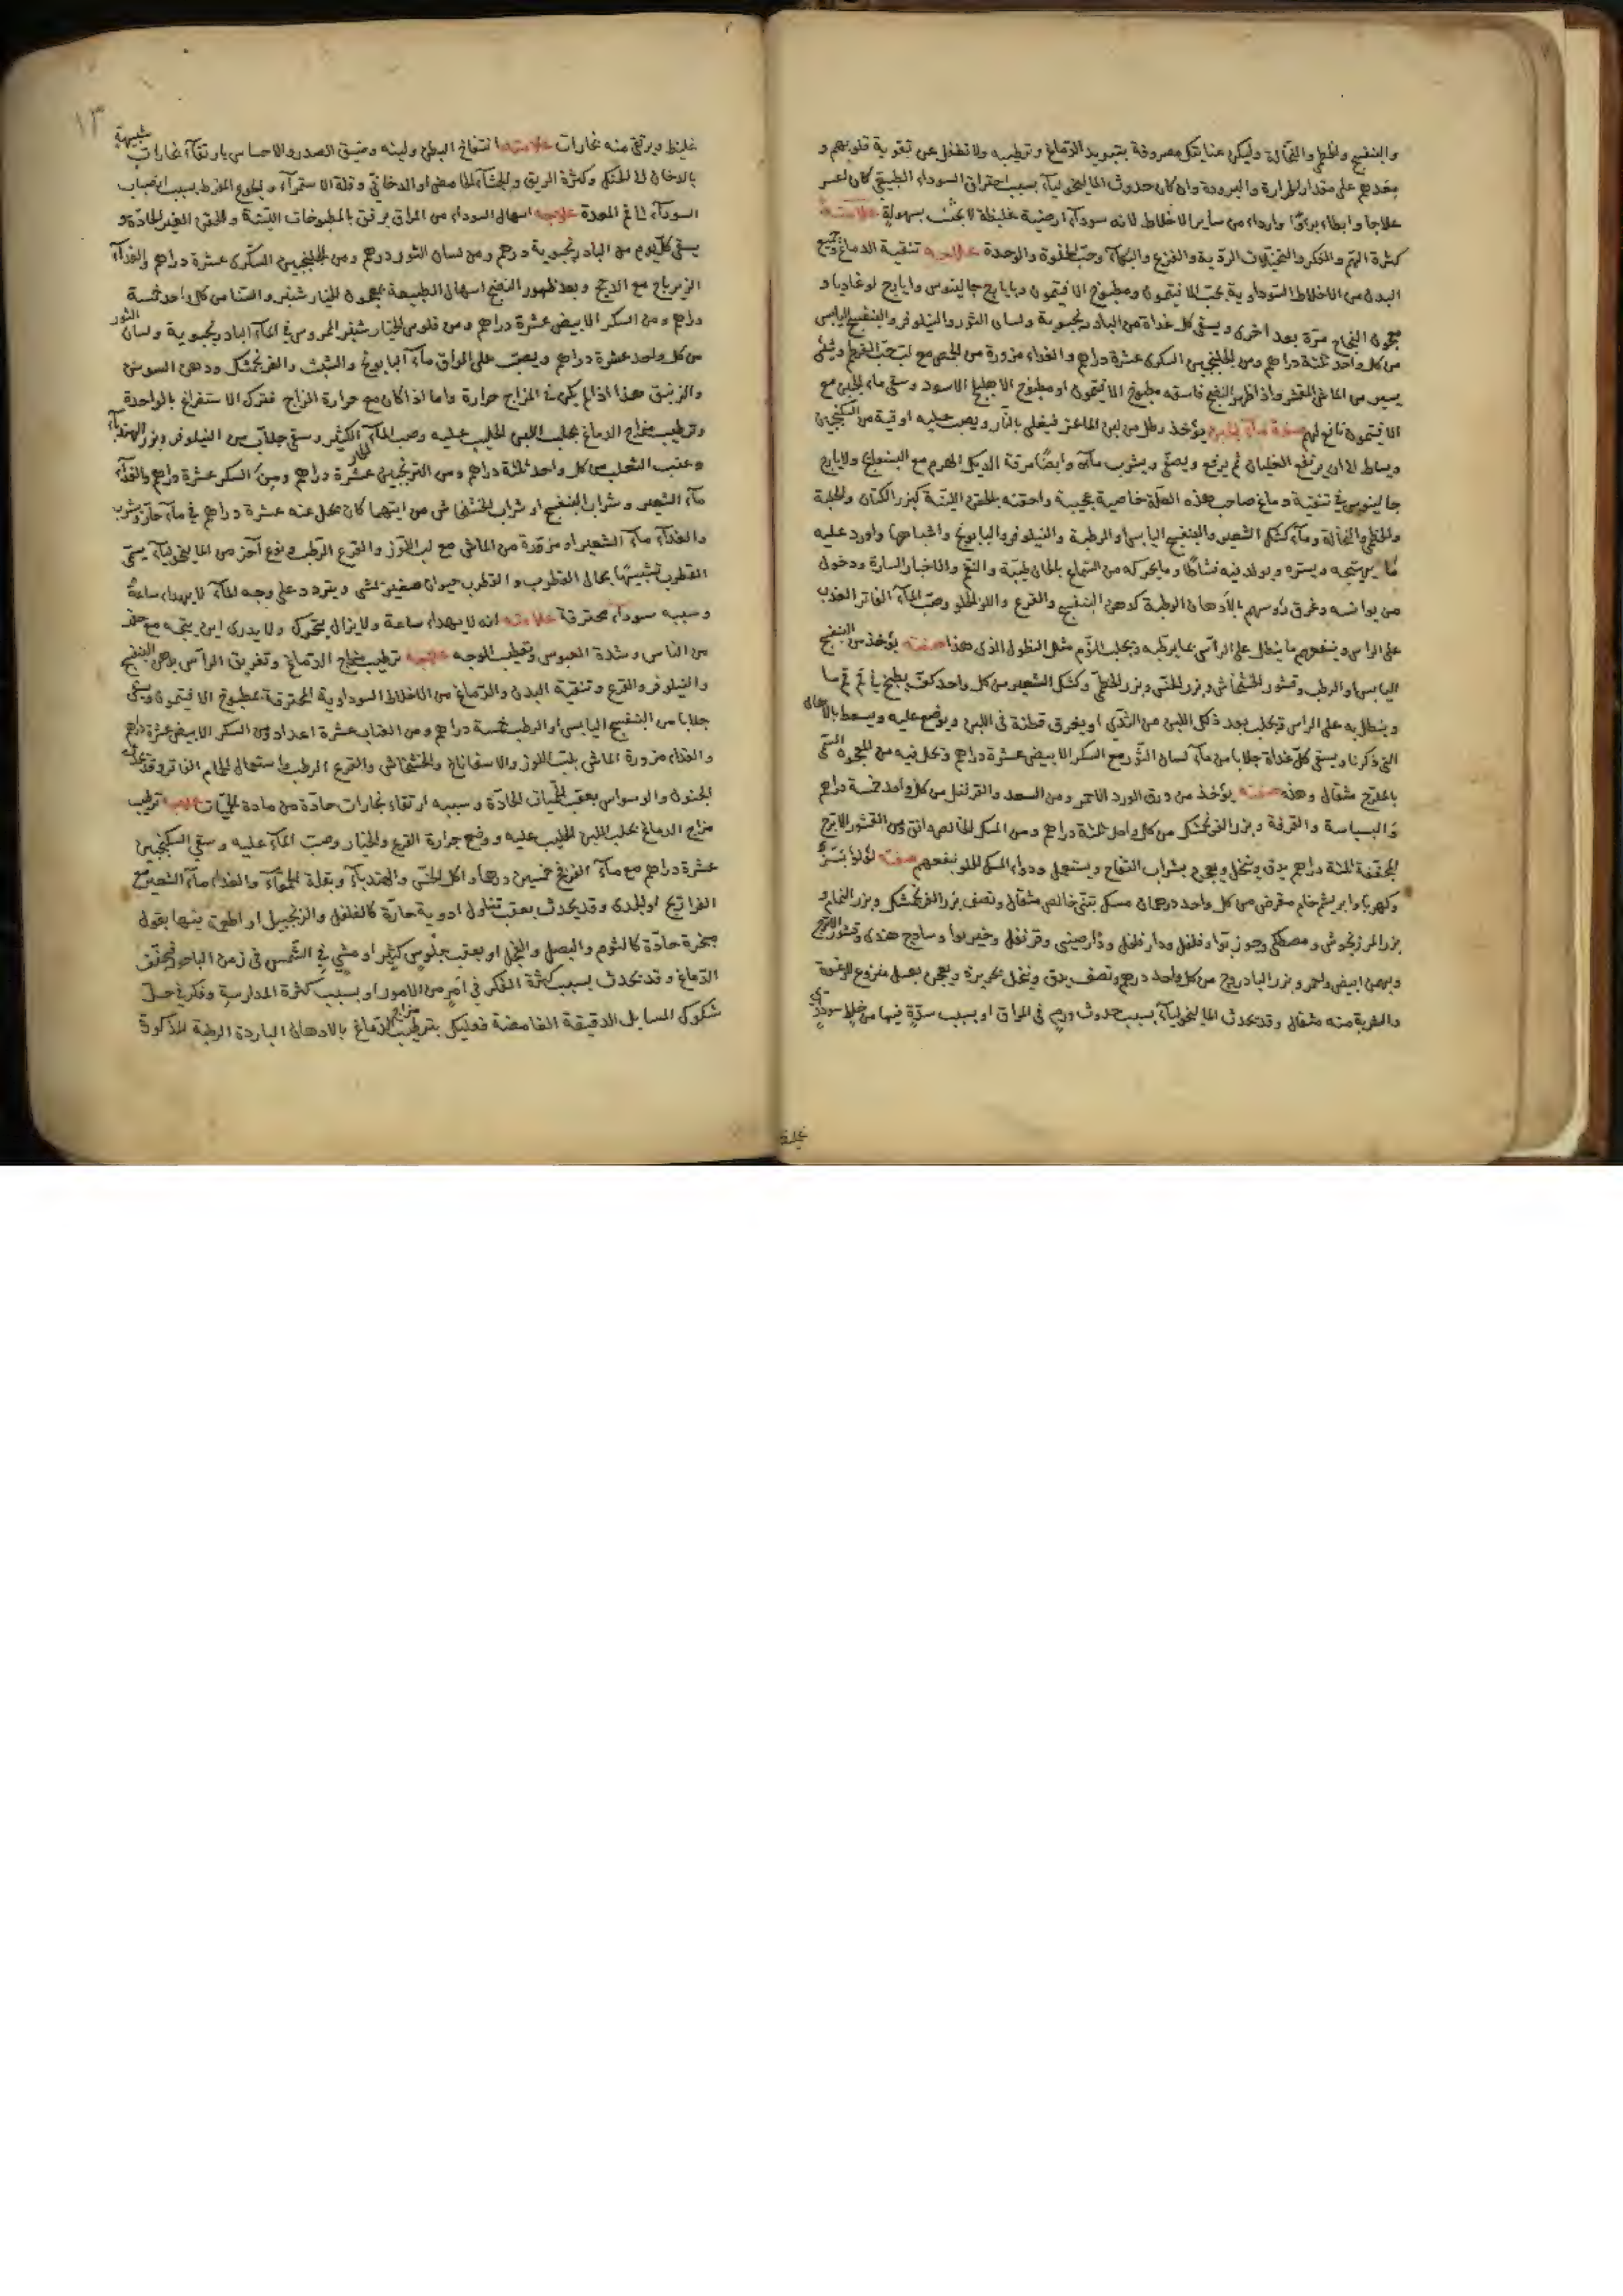 والبنفسج والخطمي والنخالة وليكن عنايتك مصروفة بتبريد الدماغ وترطيبه ولا تغفل عن تقوية قلوبهم و
بعدهم على مقدار الحرارة والبرودة وان كان حدوث الماليخوليا بسبب احتراق السوداء الطبيعي كان اعسر
علاجا وابطاء برءًا وارداء من ساير الاخلاط لانه سوداء ارضية غليظة لا يجيب بسهولة علامته
كثرة الهم والفكر والتخيلات الردية والفزع والبكاء وحب الخلوة والوحدة علاجه تنقية الدماغ وجميع
البدن من الاخلاط السوداوية بحب الافتيمون ومطبوخ الافتيمون وبايارج جالينوس وايارج لوغاديا و
معجون النجاح مرة بعد اخرى ويسقى كل غداة من البادرنجبوية ولسان الثور والنيلوفر والبنفسج اليابس
من كل واحد ثلثة دراهم ومن الجلنجبين السكرى عشرة دراهم والغذاء مزورة من الحمص مع لب حب القرطم وشئ
يسير من الماش المقشر واذا ظهر النضج فاسقه مطبوخ الافتيمون او مطبوخ الاهليلج الاسود وسقى ماء الجبن مع
الافتيمون نافع لهم صفة ماء الجبن يؤخذ رطل من لبن الماعز فيغلى بالنار ويصب عليه اوقية من السكنجبين
ويساط الا ان يرتفع الغليان ثم يرفع ويصفى ويشرب ماءه وايضا مرقة الديك الهرم مع البسفايج ولايارج
جالينوس في تنقية دماغ صاحب هذه العلة خاصية عجيبة واحقنه بالحقن اللينة كبزر الكتان والحلبة
والخطمي والنخالة وماء كشك الشعير والبنفسج اليابس او الرطبة والنيلوفر والبابونج واشباهها واورد عليه
ما يبهجه ويسره ويولد فيه نشاطا وما يحركه من السماع بالحان طيبة والنغم والاخبار السارة ودخول
من يوانسه وغرق رؤسهم بالادهان الرطبة كدهن البنفسج والقرع واللوز الحلو وصب الماء الفاتر العذب
على الراس وينفعهم ما ينطل على الرأس بما يرطبه ويجلب النوم مثل النطول الذى هذا صفته يؤخذ من البنفسج
اليابس او الرطب وقشور الخشخاش وبزر الخس وبزر الخطمى وكشك الشعير من كل واحد كف يطبخ في
وينطل به على الراس ويحلب بعد ذلك اللبن من الثدي او يغرق قطنة فى اللبن ويوضع عليه ويسعط بالادهان
التى ذكرنا ويسقى كل غداة جلابا من ماء لسان الثور مع السكر الابيض عشرة دراهم وتحل فيه من المعجون المسمى
بالمفرح مثقال وهذه صفته يؤخذ من ورق الورد الاحمر ومن السعد والقرنفل من كل واحد خمسة دراهم
والبسباسة والقرفة وبزر الفرنجمشك من كل واحد ثلثة دراهم ومن المسك الخالص دانق ومن القشور الاترج
المجففة ثلثة دراهم يدق وينخل ويعجن بشراب التفاح ويستعمل ودواء المسك الحلو ينفعهم صفته لؤلؤ بسد
وكهربا وابريشم خام مقرض من كل واحد درهمان مسك تبتى خالص مثقال ونصف بزر الفرنجمشك وبزر النمام و
بزر المرزنجوش ومصطكى وجوز بوا وفلفل ودار فلفل ودارصينى وقرنفل وخيربوا وساذج هندى وقشور الاترج
وبهمن ابيض واحمر وبزر البادروج من كل واحد درهم ونصف يدق وينخل بحريرة ويعجن بعسل منزوع الرغوة
والشربة منه مثقال وقد يحدث الماليخوليا بسبب حدوث ورم فى المراق او بسبب سدة فيها من خلط سوداوي
غليظ
١٣
غليظ ويرتقى منه بخارات علامته انتفاخ البطن ولينه وضيق الصدر والاحساس بارتقاء بخارات شبيهة
بالدخان الى الحنك وكثرة الريق والجشاء الحامض او الدخاني وقلة الاستمراء والجوع المفرط بسبب انصباب
السوداء الى فم المعدة علاجه اسهال السوداء من المراق برفق بالمطبوخات اللينة والحقن الغير الحادة و
يسقى كل يوم من البادرنجبوية درهم ومن لسان الثور درهم ومن الجلنجبين السكرى عشرة دراهم والغذاء
الزيرباج مع الدجج وبعد ظهور النضج اسهال الطبيعة بمعجون الخيارشنبر والسنا من كل واحد خمسة
دراهم ومن السكر الابيض عشرة دراهم ومن فلوس الخيارشنبر الممروس في الماء البادرنجبوية ولسان الثور
من كل واحد عشرة دراهم ويصب على المراق ماء البابونج والشبث والفرنجمشك ودهن السوسن
والزنبق هذا اذا لم يكن في المزاج حرارة واما اذا كان مع حرارة المزاج فقرك الاستفراغ بالواحدة
وترطيب مزاج الدماغ بحلب اللبن الحليب عليه وصب الماء الحار الكثير وسقى جلاب من النيلوفر وبزر الهندباء
وعنب الثعلب من كل واحد ثلثة دراهم ومن الترنجبين عشرة دراهم ومن السكر عشرة دراهم والغذاء
ماء الشعير وشراب البنفسج او شراب الخشخاش من ايتهما كان يحل عنه عشرة دراهم في ماء حار ويشرب
والغذاء ماء الشعير او مزورة من الماش مع لب اللوز والقرع الرطب ونوع آخر من الماليخوليا يسمى
القطرب تشبيها بحال القطرب والقطرب حيوان صغير يمشى ويتردد على وجه الماء لا يهداء ساعة
وسببه سوداء محترقة علامته انه لا يهداء ساعة ولا يزال يتحرك ولا يدرى اين يتجه مع حذر
من الناس وشدة العبوس وتقطب الوجه علاجه ترطيب مزاج الدماغ وتغريق الرأس بدهن البنفسج
والنيلوفر والقرع وتنقية البدن والدماغ من الاخلاط السوداوية المحترقة بمطبوخ الافتيمون ويسقى
جلابا من البنفسج اليابس او الرطب خمسة دراهم ومن العناب عشرة اعداد ومن السكر الابيض عشرة دراهم
والغذاء مزورة الماش بلب اللوز والاسفاناخ والخشخاش والقرع الرطب واستعمال الحمام الفاتر وقد يحدث
الجنون والوسواس بعقب الحميات الحادة وسببه ارتقاء بخارات حادة من مادة الحميات علاجه ترطيب
مزاج الدماغ بحلب اللبن الحليب عليه ووضع جرادة القرع والخيار وصب الماء عليه وسقى السكنجبين
عشرة دراهم مع ماء القرع خمسين درهما واكل الخس والهندباء وبقلة الحمقاء والغذاء ماء الشعير مع
الفراريج او الجدى وقد يحدث بعقب تناول ادوية حارة كالفلفل والزنجبيل او اطعمة فيها بقول
مبخرة حادة كالثوم والبصل والفجل او بعقب جلوس كثير او مشي في الشمس فى زمن الباحور فيحترق
الدماغ وقد يحدث بسبب كثرة الفكر في امر من الامور او بسبب كثرة المدارسة وفكر في حل
شكوك المسايل الدقيقة الغامضة فعليك بترطيب مزاج الدماغ بالادهان الباردة الرطبة المذكورة